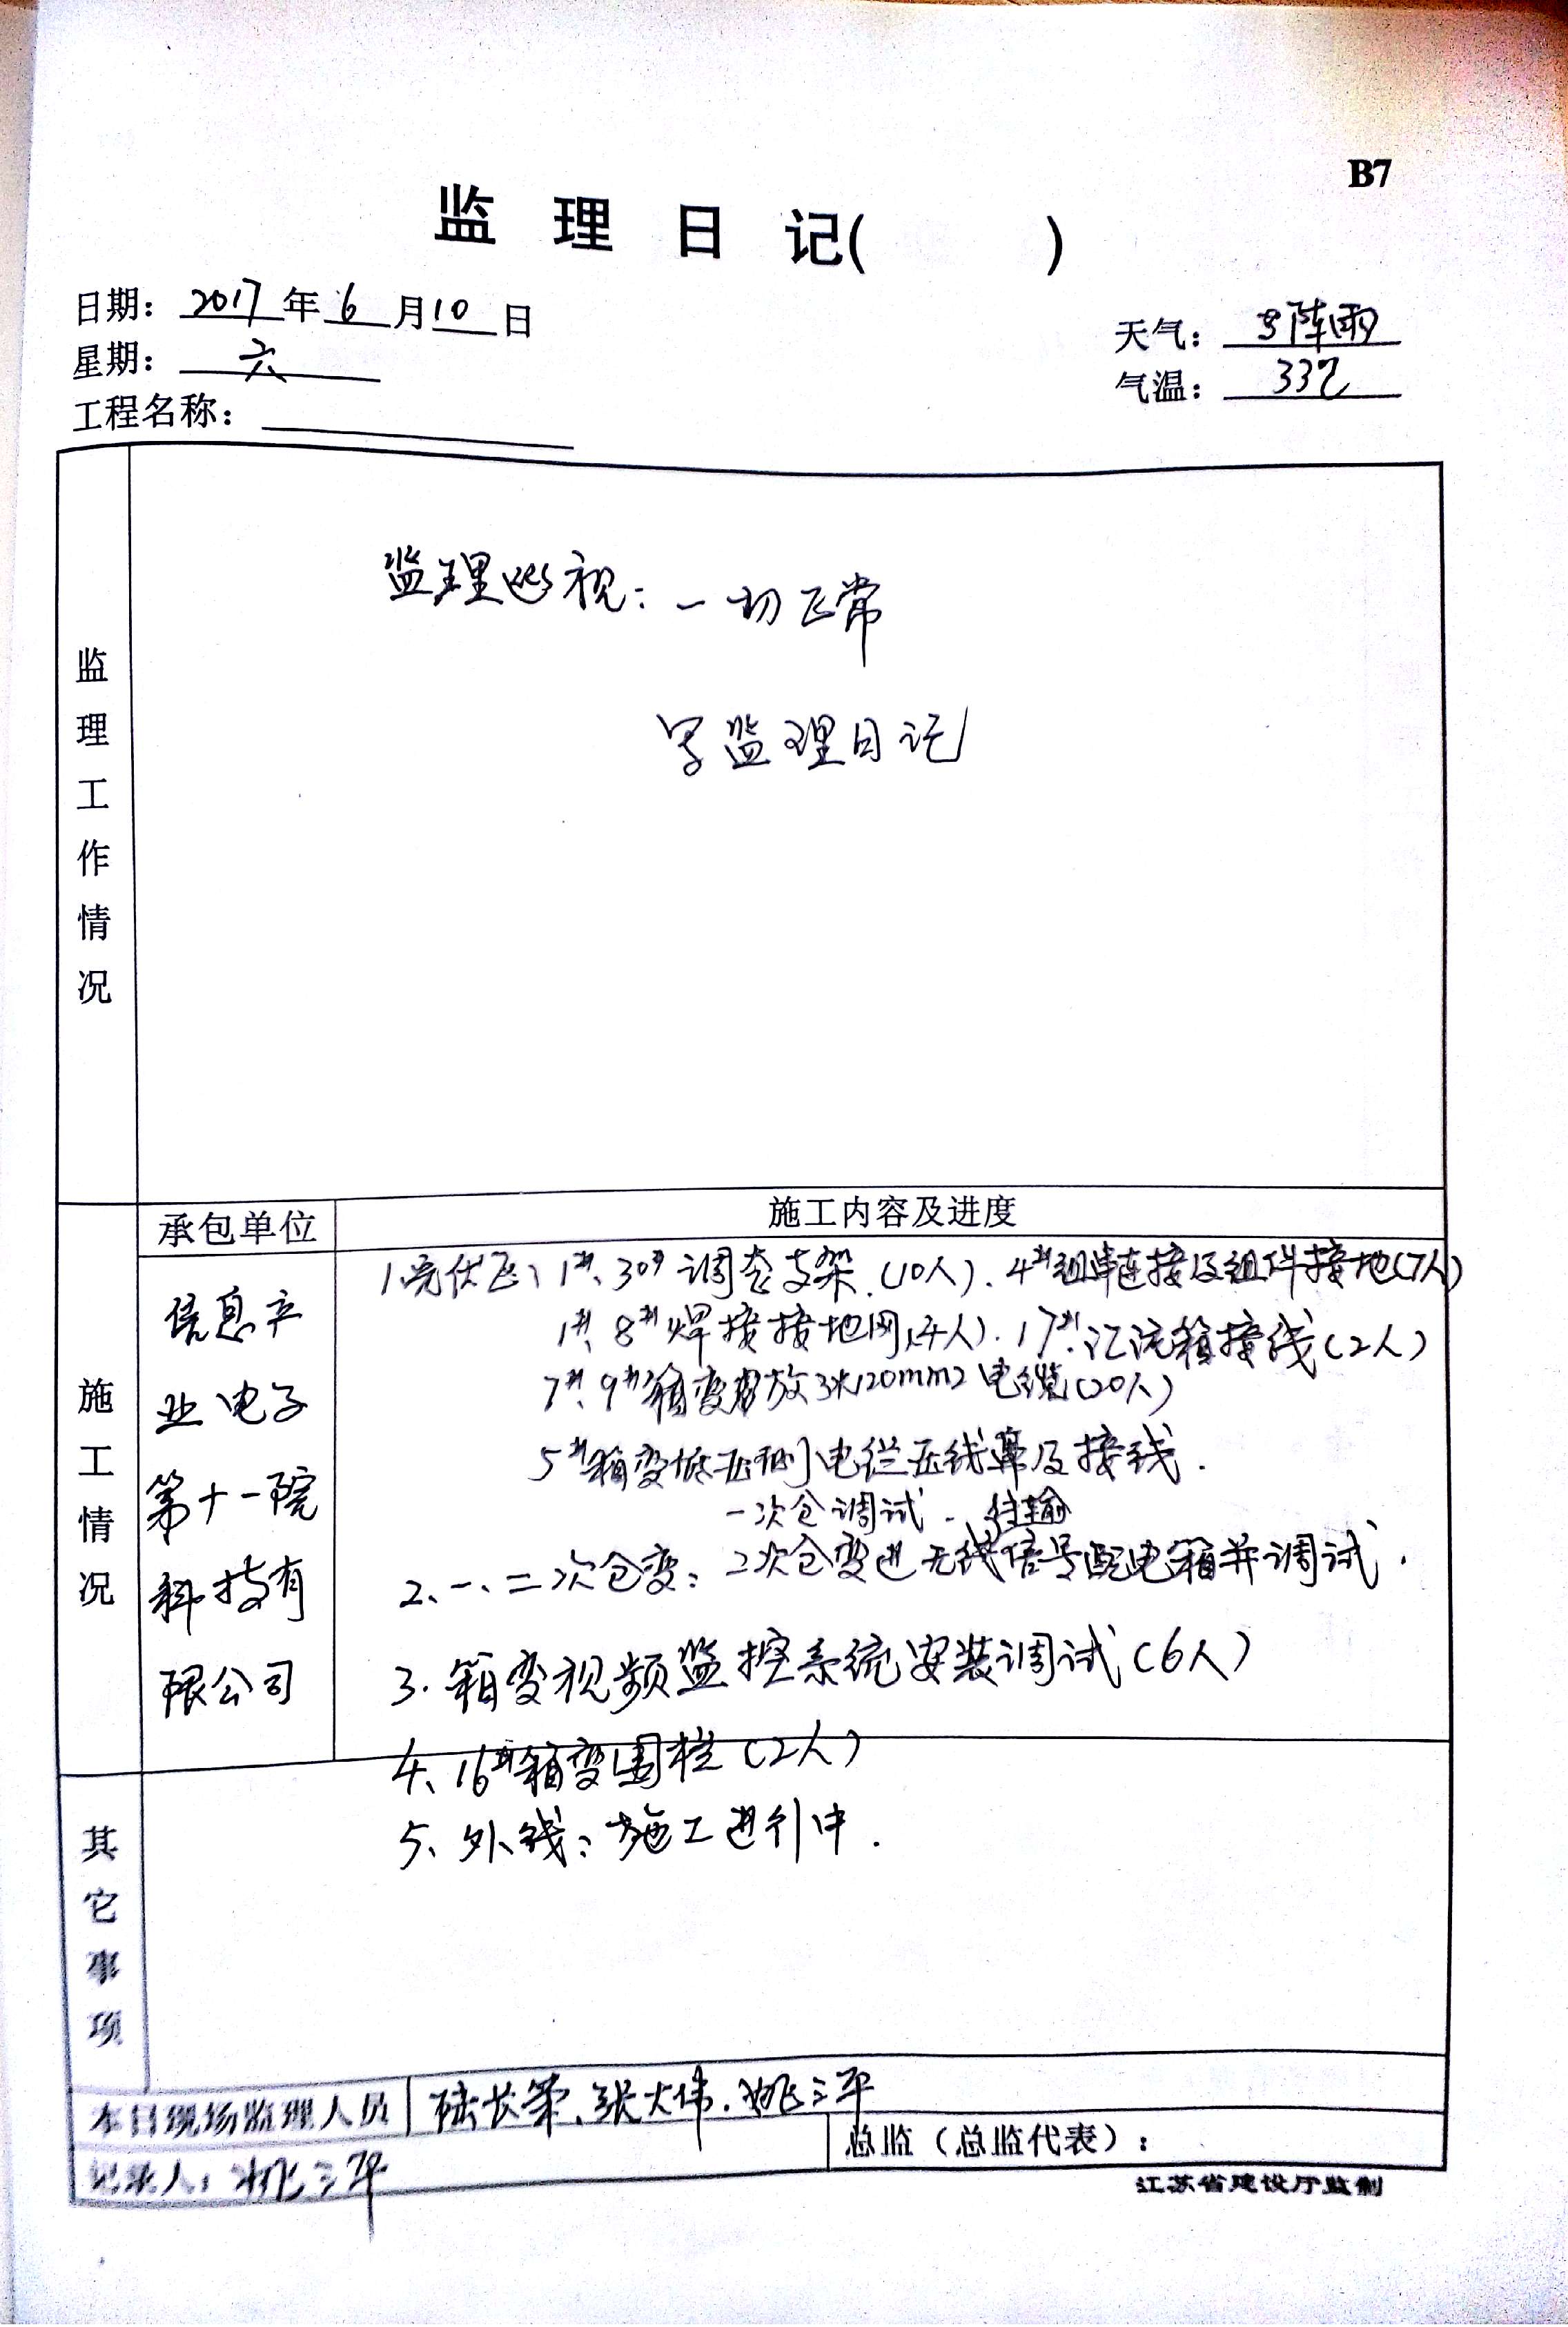 B7
监理日记( )
日期: 2017年6月10日
天气: 阵雨
星期: 六
气温: 33℃
工程名称:
监理工作情况
监理巡视: 一切正常
写监理日记
施工情况
承包单位
施工内容及进度
信息产
业电子
第十一院
科技有
限公司
1、光伏区: 1#、30#调整支架(10人). 4#组串连接及组件接地(7人)
1#、8#焊接接地网(4人). 17#汇流箱接线(2人)
7#、9#箱变 放3*120mm2电缆(20人)
5#箱变低压侧电缆压线鼻及接线.
一次仓调试. 传输
2、一、二次仓变: 2次仓变进无线信号配电箱并调试.
3. 箱变视频监控系统安装调试(6人)
4、16#箱变围栏(2人)
5、外线: 施工进行中.
其它事项
本日现场监理人员 陆长荣、张大伟、姚三平
记录人: 姚三平
总监(总监代表):
江苏省建设厅监制